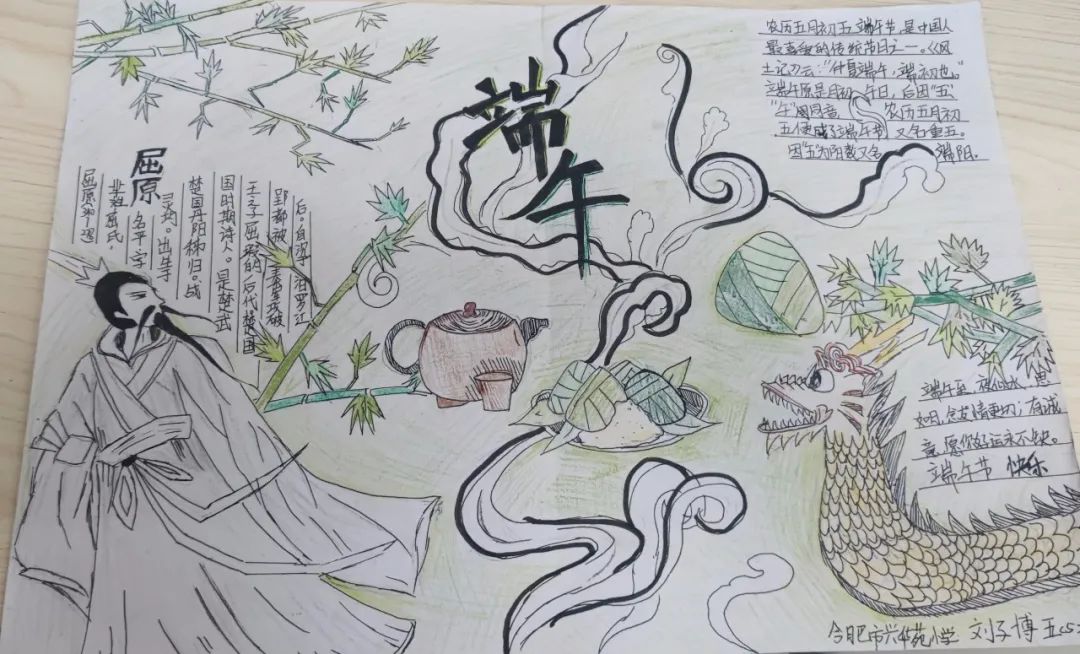 端午
农历五月初五端午节,是中国人
最喜爱的传统节日之一。《风
土记》云:“仲夏端午,端,初也。”
端午原是月初午日,后因“五”
“午”同音 农历五月初
五便成了端午节 又名重五。
因“五”为阳数又名 端阳。
屈原
屈原
名平,字
灵均。出生于
楚国丹阳秭归。战
国时期诗人。是楚武
王之子屈瑕的后代楚国
郢都被
后。自沉 汨罗江
端午至
如 有诚
意,愿你好运永不缺。
端午节 快乐
合肥市兴华苑小学 刘子博 五